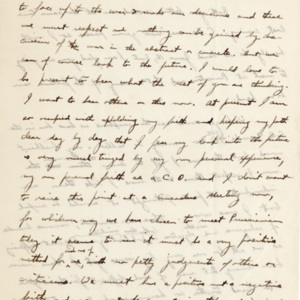 to face up to the war & make our decisions and these
we must respect and nothing can be gained by the
criticism of the war in the abstract or concrete, but we
can of course look to the future. I would love to
be present to hear what the rest of you are thinking.
I want to hear others on this now. At present I am
so occupied with upholding my faith and keeping my path
clear day by day that I fear my look into the future
is very much tinged by my own personal experience,
my own personal faith as a C.O. and I don't want
to raise this point at a meeting now,
for whichever way we have chosen to meet
today it seems to me it must be a very positive
method for us, with no petty judgments of others or
criticisms. We must have a positive not a negative